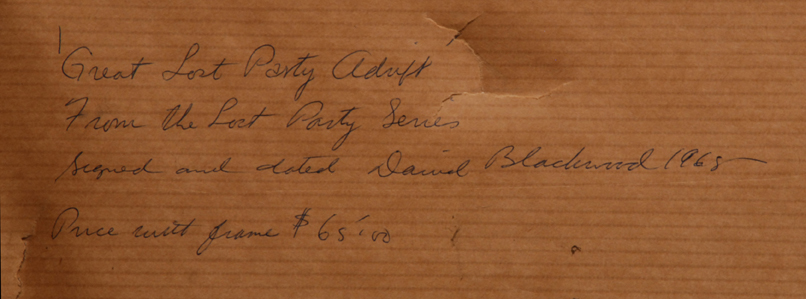 Great Lost Party Adrift
From the Lost Party Series
signed and dated David Blackwood 1965
Price with frame $65.00